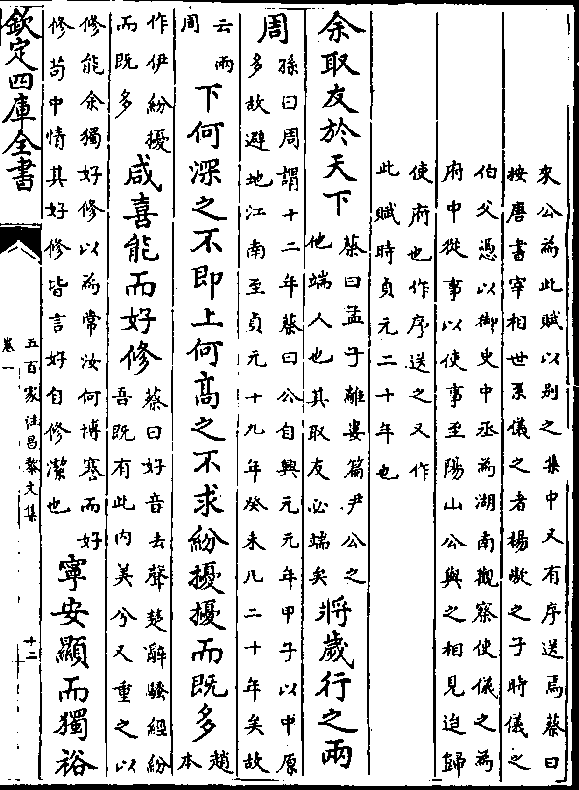 來公為此賦以别之集中又有序送焉蔡曰
按唐書宰相世系儀之者楊之子時儀之
伯父憑以御史中丞為湖南觀察使儀之為
府中從事以使事至陽山公與之相見迨歸
使府也作序送之又作
此賦時貞元二十年也
余取友於天下
蔡曰孟子離婁篇尹公之
他端人也其取友必端矣
將歲行之兩
周
孫曰周謂十二年蔡曰公自興元元年甲子以中原
多故避地江南至貞元十九年癸未凡二十年矣故
云兩
周
下何深之不即上何高之不求紛擾擾而既多
趙
本
作伊紛擾
而既多
咸喜能而好修
蔡曰好音去聲楚辭騷經紛
吾既有此内美兮又重之以
修能余獨好修以為常汝何博謇而好
修苟中情其好修皆言好自修潔也
寧安顯而獨裕
欽定四庫全書
五百家注昌黎文集
卷一
十二